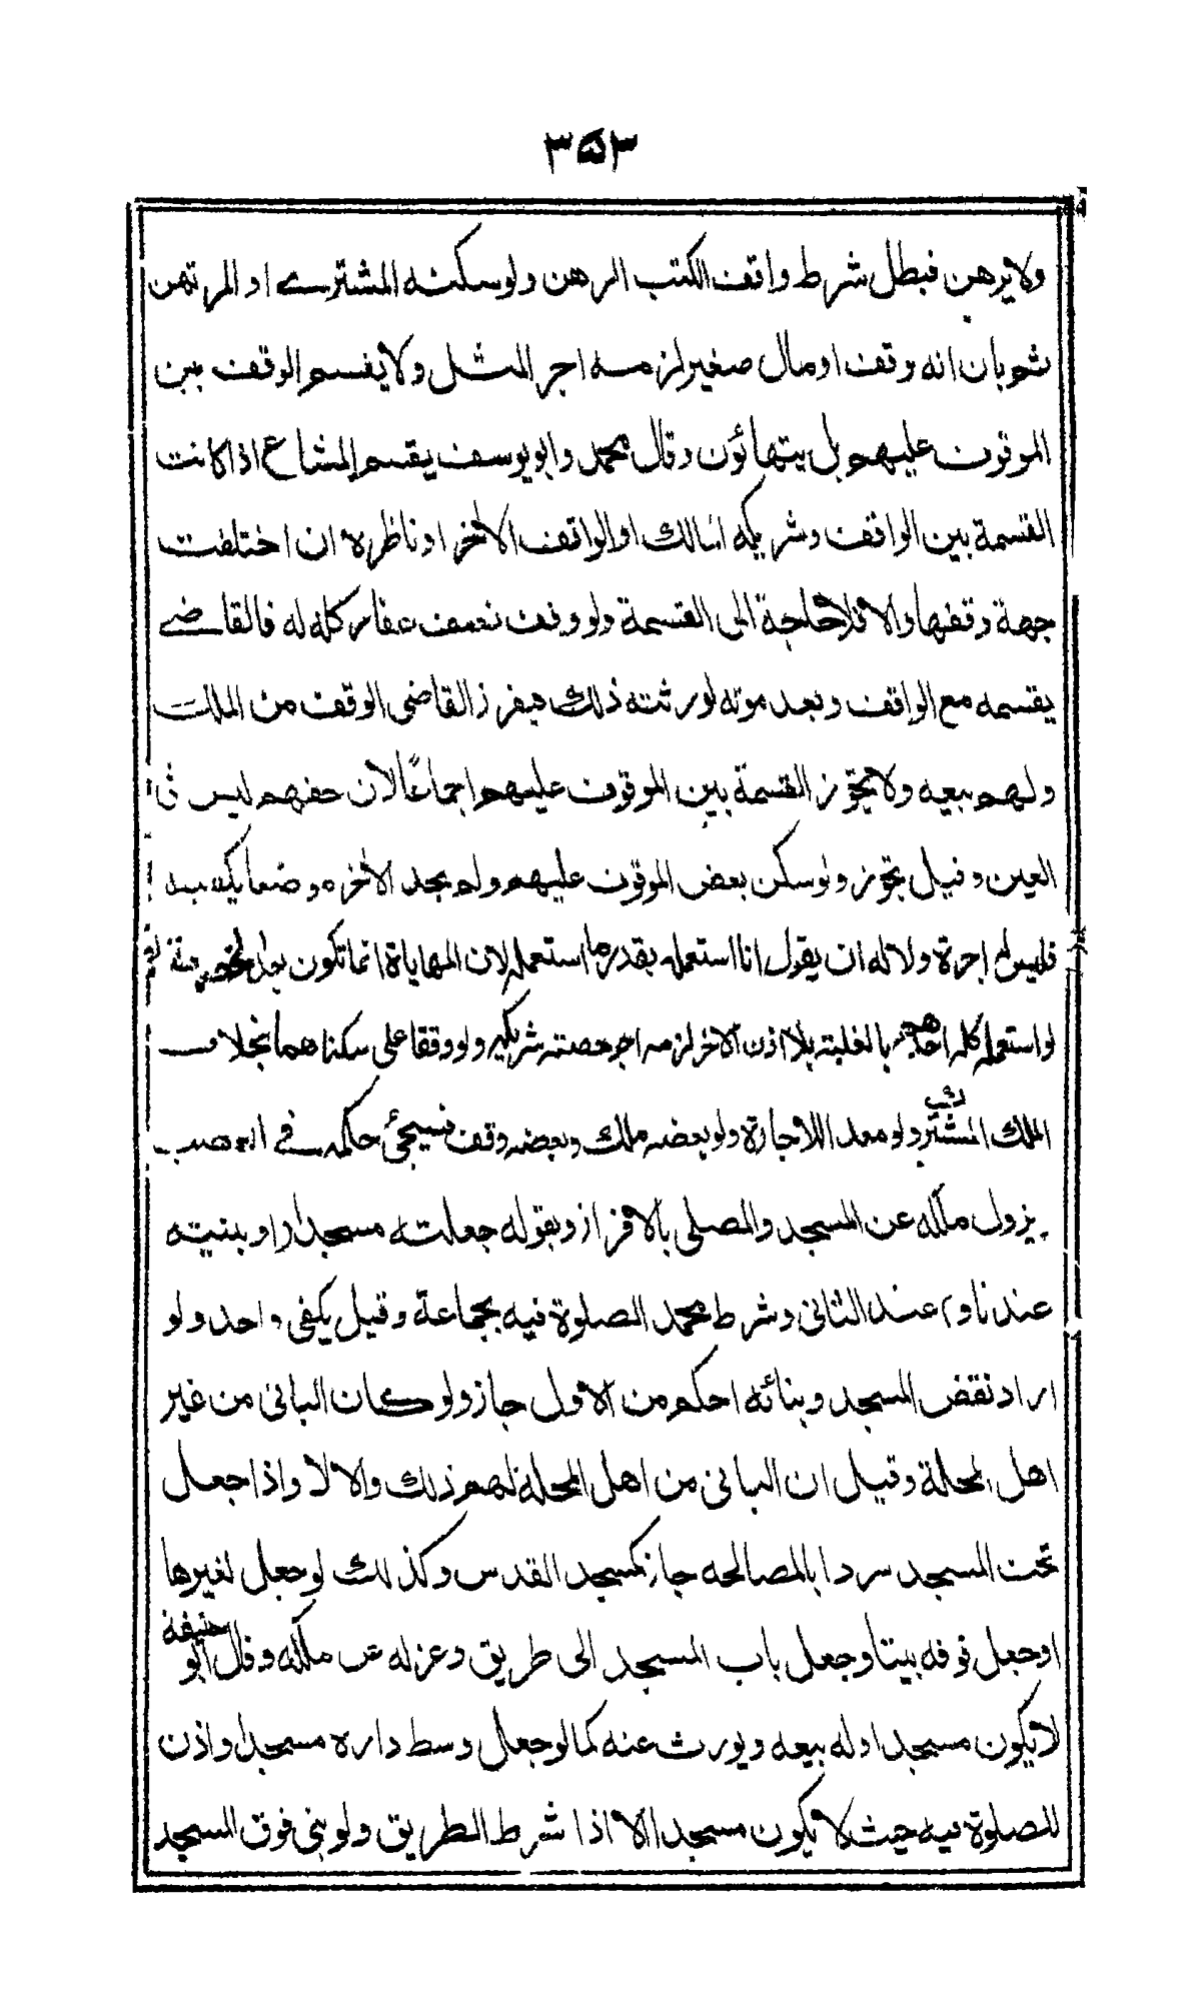 ٣٥٣
ولا يرهن فبطل شرط واقف الكتب الرهن ولو سكنه المشترے او المرتهن
ثم بان انه وقف او مال صغير لزمه اجر المثل ولا يقسم الوقف بين
الموقوف عليهم بل يتهائون وقال محمد وابو يوسف يقسم المشاع اذا كانت
القسمة بين الواقف وشريكه المالك او الواقف الاخر او ناظره ان اختلفت
جهة وقفها والا فلا حاجة الى القسمة ولو وقف نصف عقار كله له فالقاضے
يقسمه مع الواقف وبعد موته لورثته ذلك فيفرز القاضى الوقف من الملك
ولهم بيعه ولا يجوز القسمة بين الموقوف عليهم اجماعًا لان حقهم ليس فى
العين وقيل يجوز ولو سكن بعض الموقوف عليهم ولم يجد الاخر موضعا يكفيه
فليس له اجرة ولا له ان يقول انا استعمله بقدر ما استعمله لان المهاياة انما تكون بعد الخصومة نعم
لو استعمله كله احدهم بالغلبة بلا اذن الاخر لزمه اجر حصته شريكه ولو وقفا على سكناهما بخلاف
الملك المشترك ولو معدا للاجارة ولو بعضه ملك وبعضه وقف فسيجئ حكمه فے الغصب
يزول ملكه عن المسجد والمصلى بالافراز وبقوله جعلته مسجدا او بنيته
عندنا و عند الثانى وشرط محمد الصلوة فيه بجماعة وقيل يكفى واحد ولو
اراد نقض المسجد وبنائه احكم من الاول جاز ولو كان البانى من غير
اهل المحلة وقيل ان البانى من اهل المحلة لهم ذلك والا لا واذا جعل
تحت المسجد سردابا لمصالحه جاز كمسجد القدس وكذلك لو جعل لغيرها
او جعل فوقه بيتا وجعل باب المسجد الى طريق وعزله عن ملكه وقال ابو حنيفة
لا يكون مسجدا وله بيعه ويورث عنه كما لو جعل وسط داره مسجدا واذن
للصلوة فيه حيث لا يكون مسجدا الا اذا شرط الطريق ولو بنى فوق المسجد